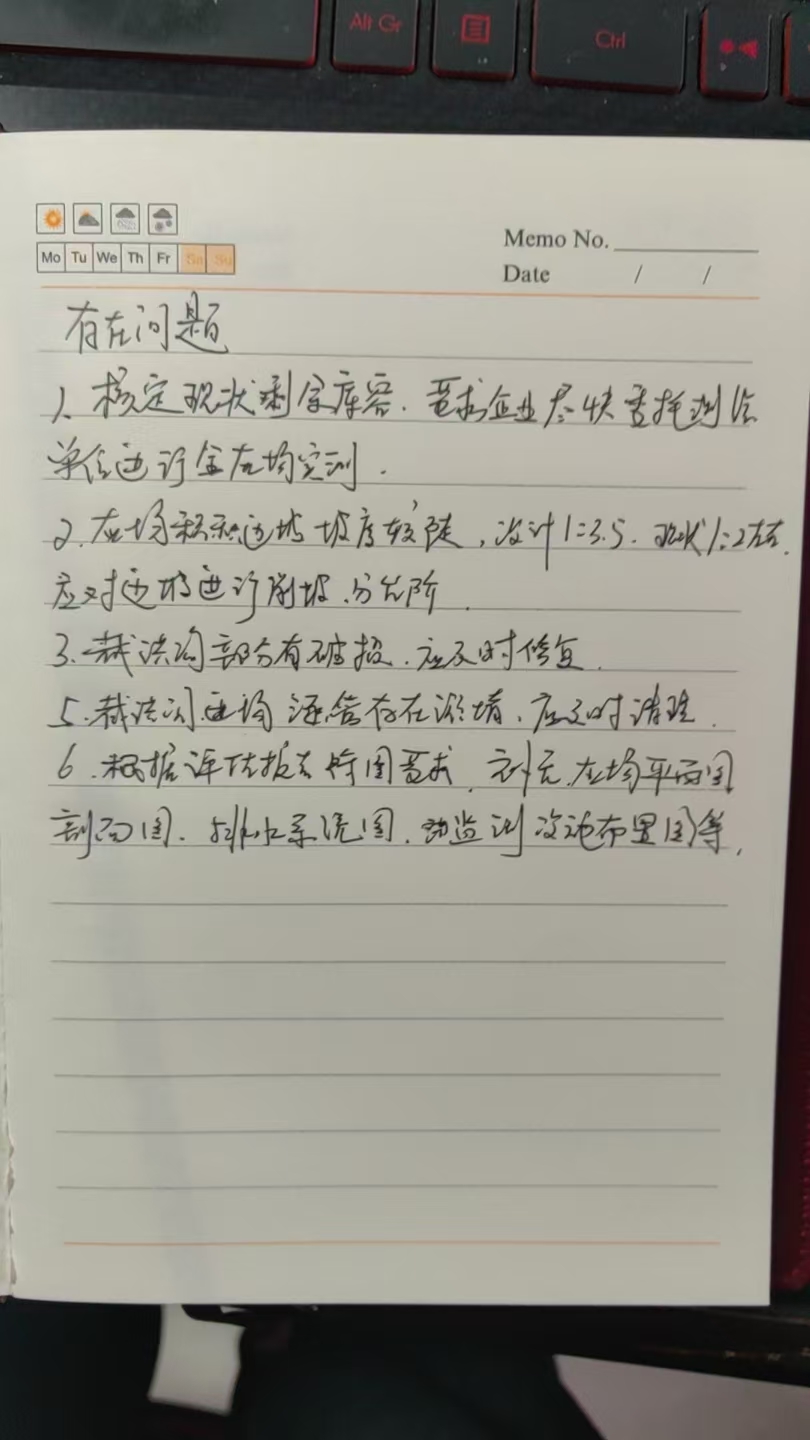 Alt Gr
Ctrl
Mo Tu We Th Fr Sa Su
Memo No.
Date / /
存在问题
1、核定现状剩余库容,要求企业尽快委托测绘
单位进行全灰场实测.
2.灰场积边坡坡度较陡,设计1:3.5.现状1:2左右.
应对边坡进行削坡.分台阶.
3.截洪沟部分有破损.应及时修复.
5.截洪沟.涵管存在淤堵,应及时清理.
6.根据评估报告附图要求,补充灰场平面图
剖面图.排水系统图.监测设施布置图等,